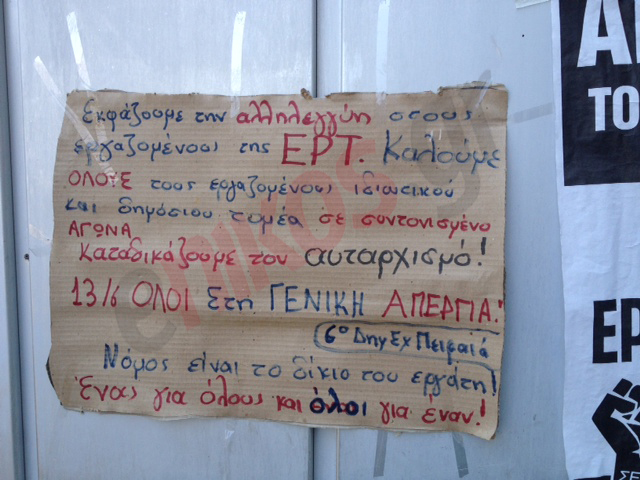 Εκφάζουμε την αλληλεγγύη στους
εργαζομένους της ΕΡΤ. Καλούμε
ΟΛΟΥΣ τους εργαζομένους ιδιωτικού
και δημόσιου τομέα σε συντονισμένο
ΑΓΩΝΑ
Καταδικάζουμε τον αυταρχισμό!
13/6 ΟΛΟΙ Στη ΓΕΝΙΚΗ ΑΠΕΡΓΙΑ!
6º Δημ Σχ Πειραιά
Νόμος είναι το δίκιο του εργάτη!
Ένας για όλους και όλοι για έναν!
ΤΟ
ΕΡ
eNIKOS.gr